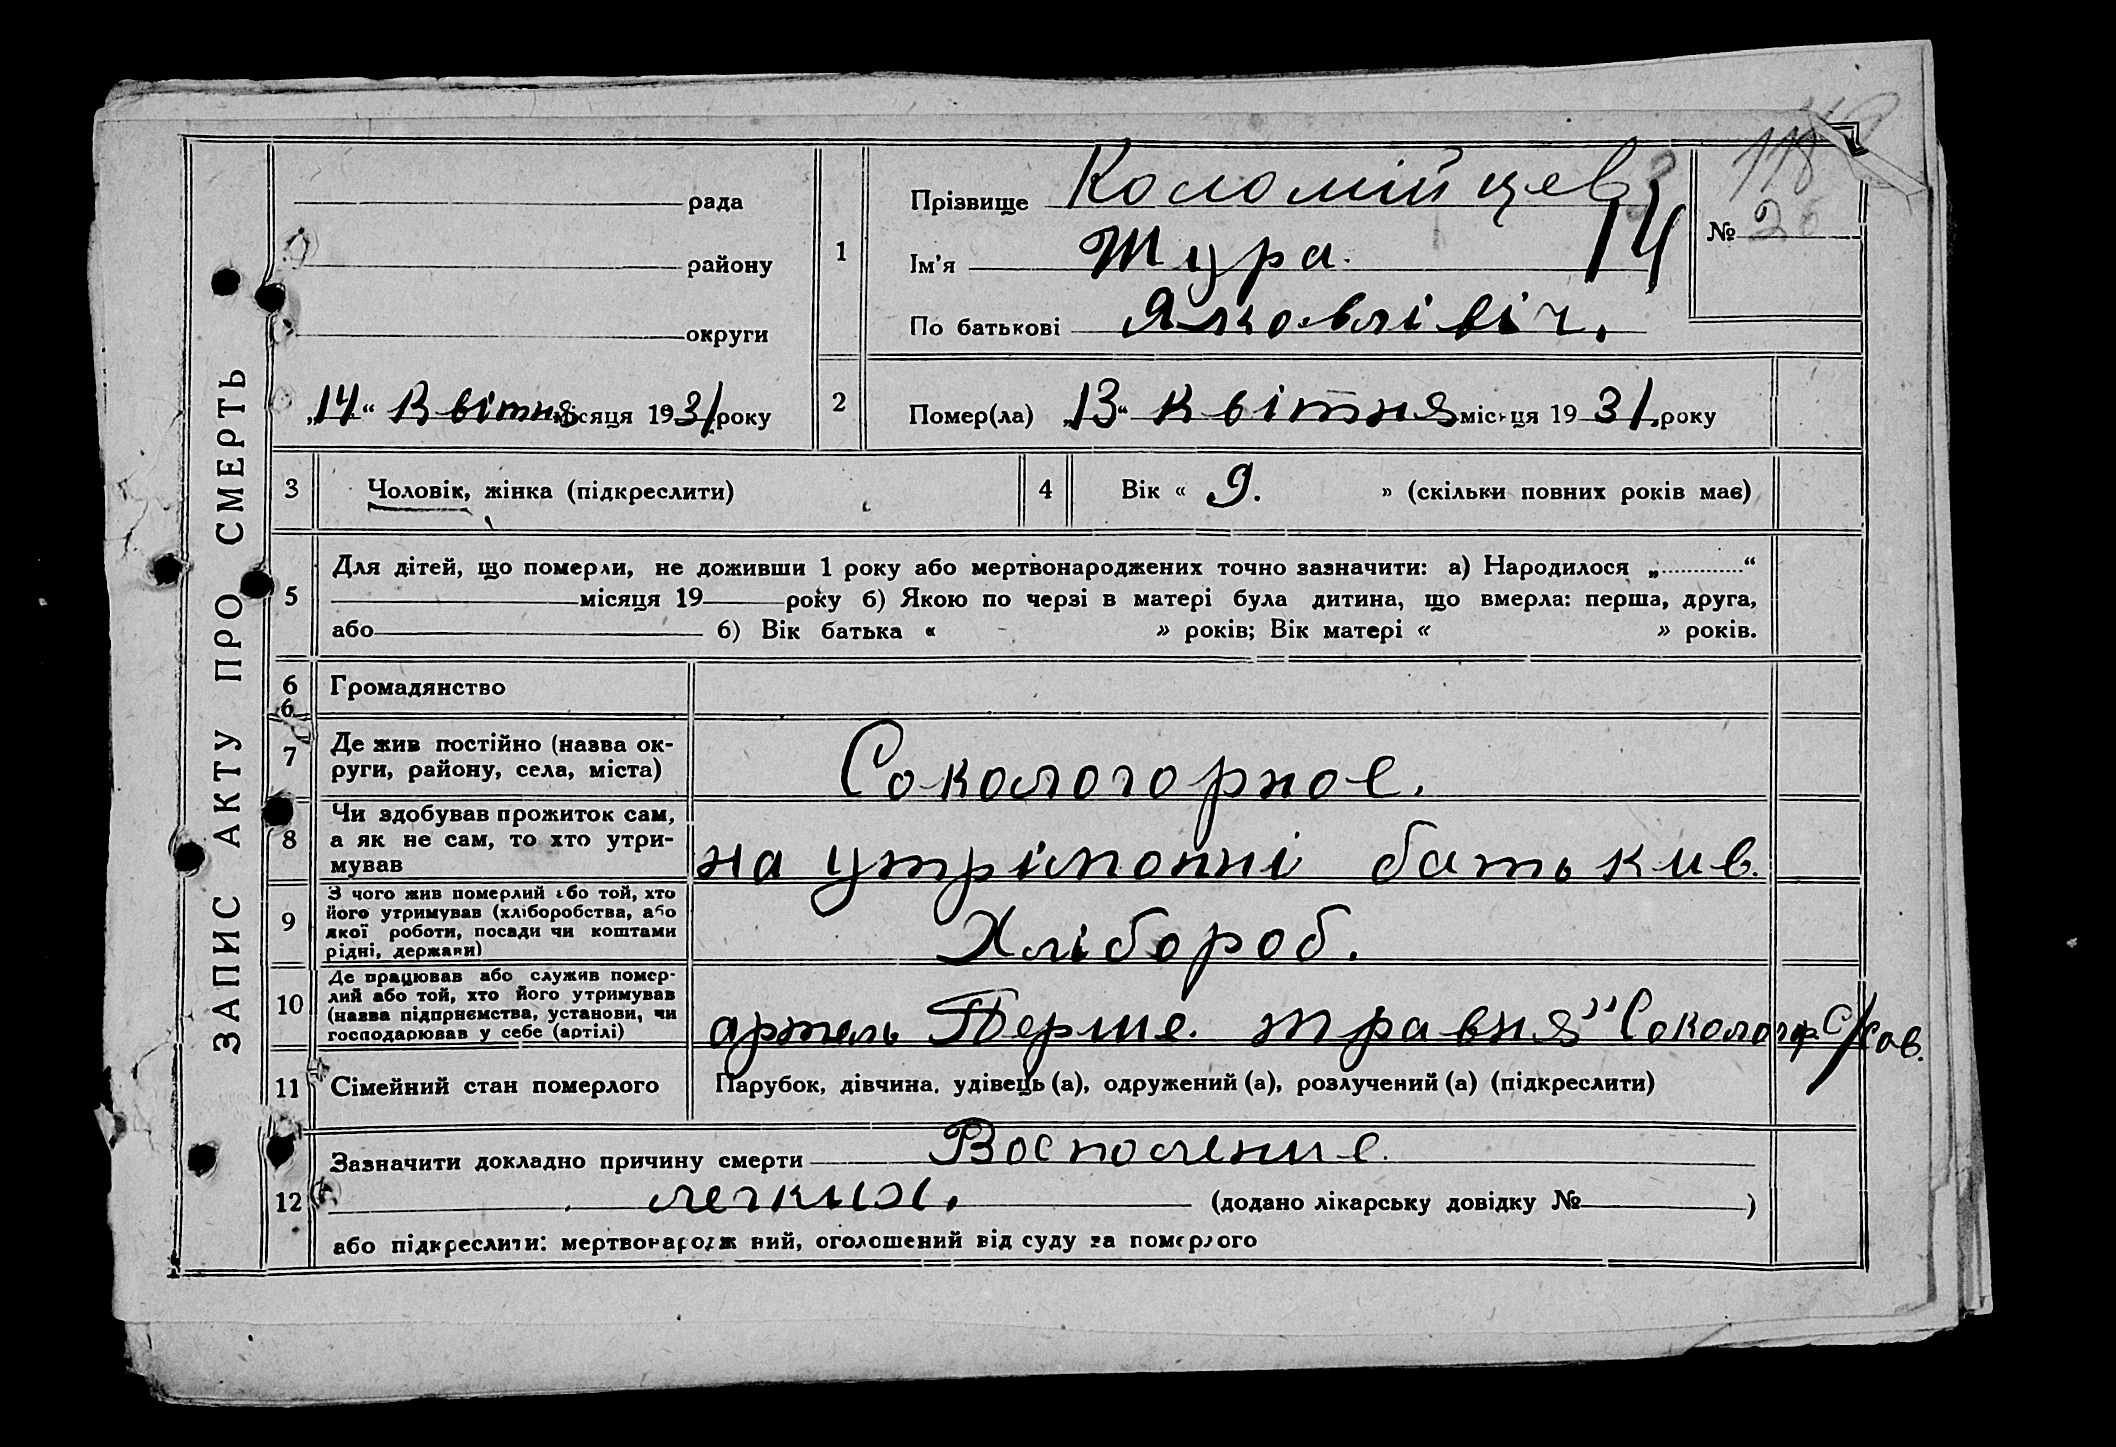 ЗАПИС АКТУ ПРО СМЕРТЬ
рада
району
округи
„14“ Квітня місяця 1931 року
1
Прізвище Коломійцев
Ім'я Тура.
По батькові Яковлівіч.
14
118
№ 26
2
Помер(ла) „13“ Квітня місяця 1931 року
3 Чоловік, жінка (підкреслити)
4 Вік « 9. » (скільки повних років має)
5 Для дітей, що померли, не доживши 1 року або мертвонароджених точно зазначити: а) Народилося „............“
місяця 19 року б) Якою по черзі в матері була дитина, що вмерла: перша, друга,
або б) Вік батька « » років; Вік матері « » років.
6 Громадянство
6
7 Де жив постійно (назва ок-
руги, району, села, міста)
Сокологорное.
8 Чи здобував прожиток сам,
а як не сам, то хто утри-
мував
на утрімонні батькив.
9 З чого жив померлий або той, хто
його утримував (хліборобства, або
якої роботи, посади чи коштами
рідні, держави)
Хлібороб.
10 Де працював або служив помер-
лий або той, хто його утримував
(назва підприємства, установи, чи
господарював у себе (артілі)
артель Перше. травня" Сокологр. С/сов.
11 Сімейний стан померлого Парубок, дівчина, удівець (а), одружений (а), розлучений (а) (підкреслити)
12 Зазначити докладно причину смерти Восполение
легких. (додано лікарську довідку № )
або підкреслити: мертвонародж ний, оголошений від суду за померлого